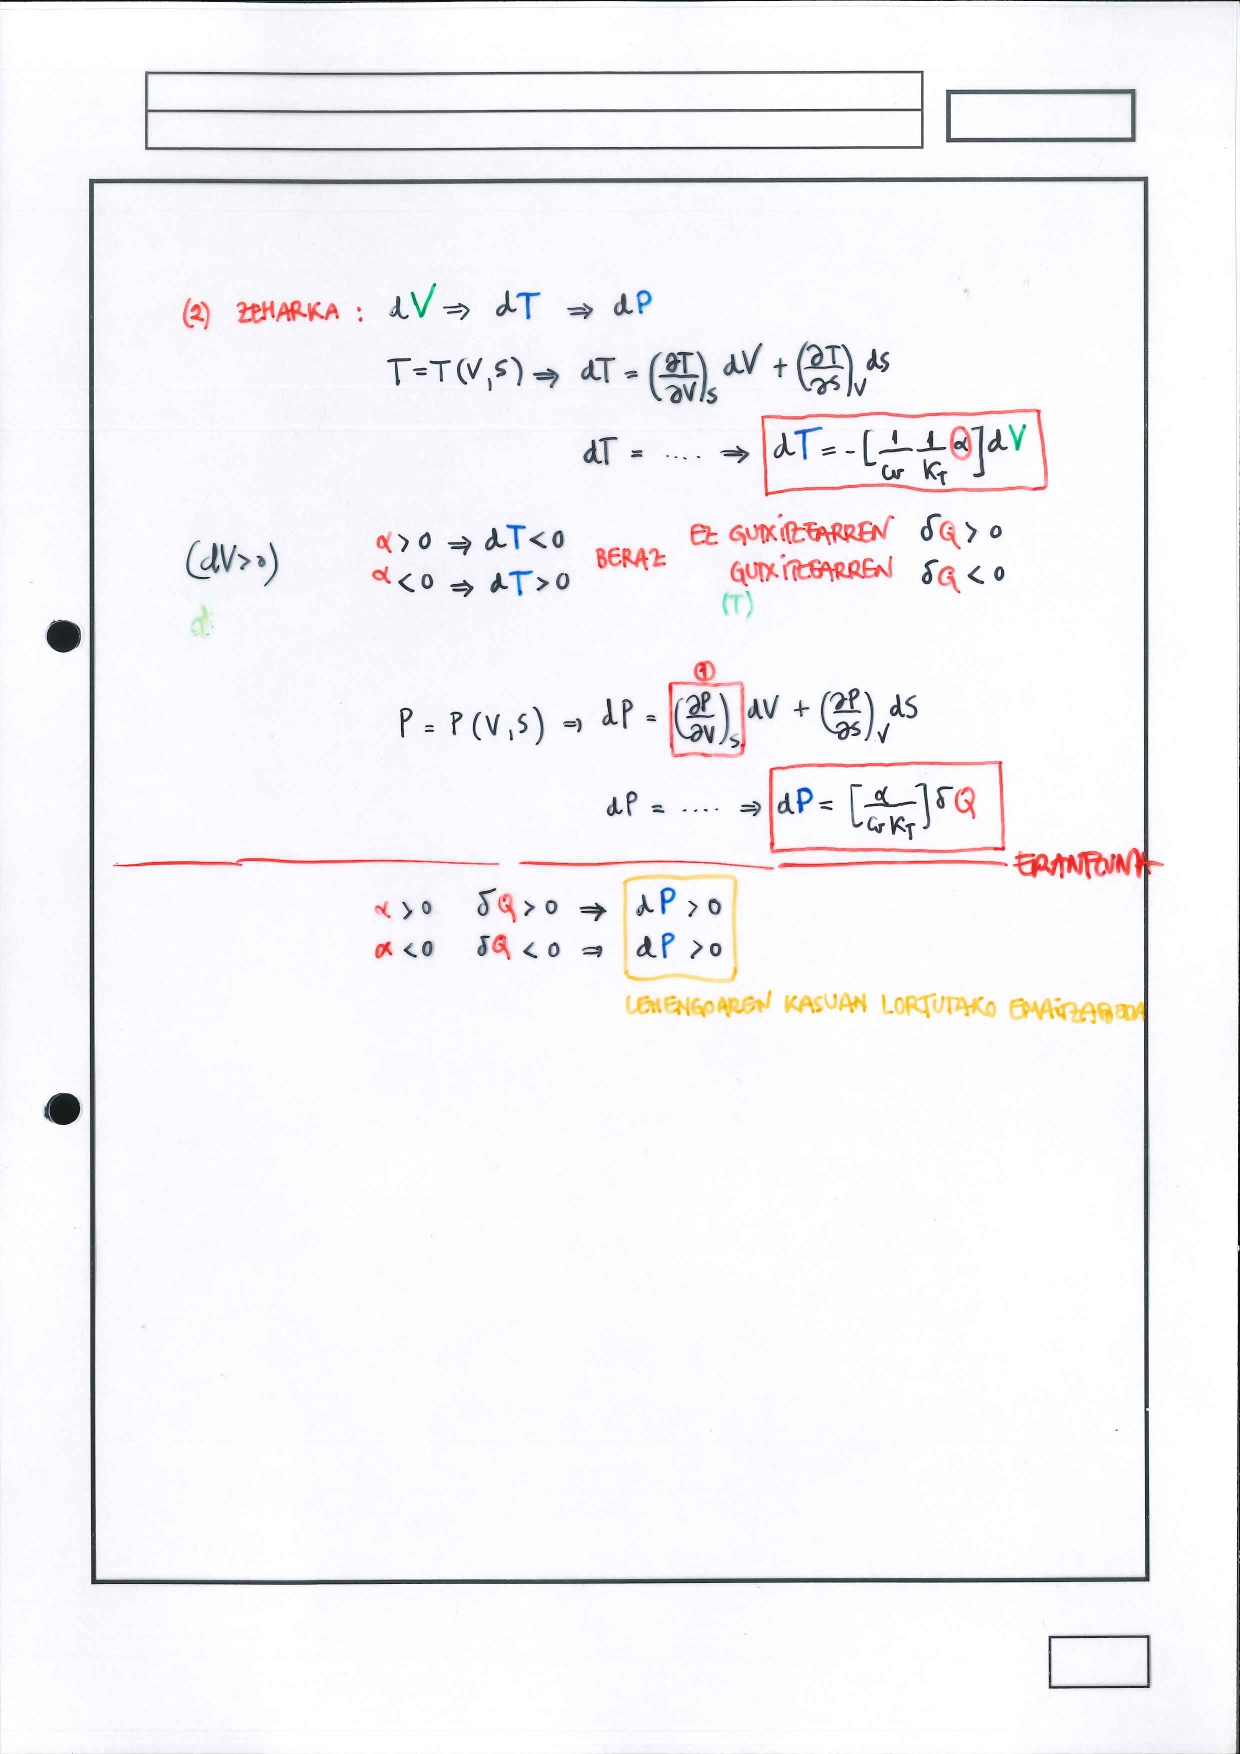 (2) ZEHARKA : dV ⇒ dT ⇒ dP
T = T(V,S) ⇒ dT = (∂T/∂V)_S dV + (∂T/∂S)_V dS
dT = .... ⇒ dT = -[1/c_V 1/κ_T α] dV
(dV>0) α>0 ⇒ dT<0 BERAZ EZ GUTXITZEARREN δQ>0
α<0 ⇒ dT>0 GUTXITZEARREN δQ<0
d (T)
①
P = P(V,S) ⇒ dP = (∂P/∂V)_S dV + (∂P/∂S)_V dS
dP = .... ⇒ dP = [α/c_V κ_T] δQ
ERANTZUNA
α>0 δQ>0 ⇒ dP>0
α<0 δQ<0 ⇒ dP>0
LEHENGOAREN KASUAN LORTUTAKO EMAITZA BERA DA